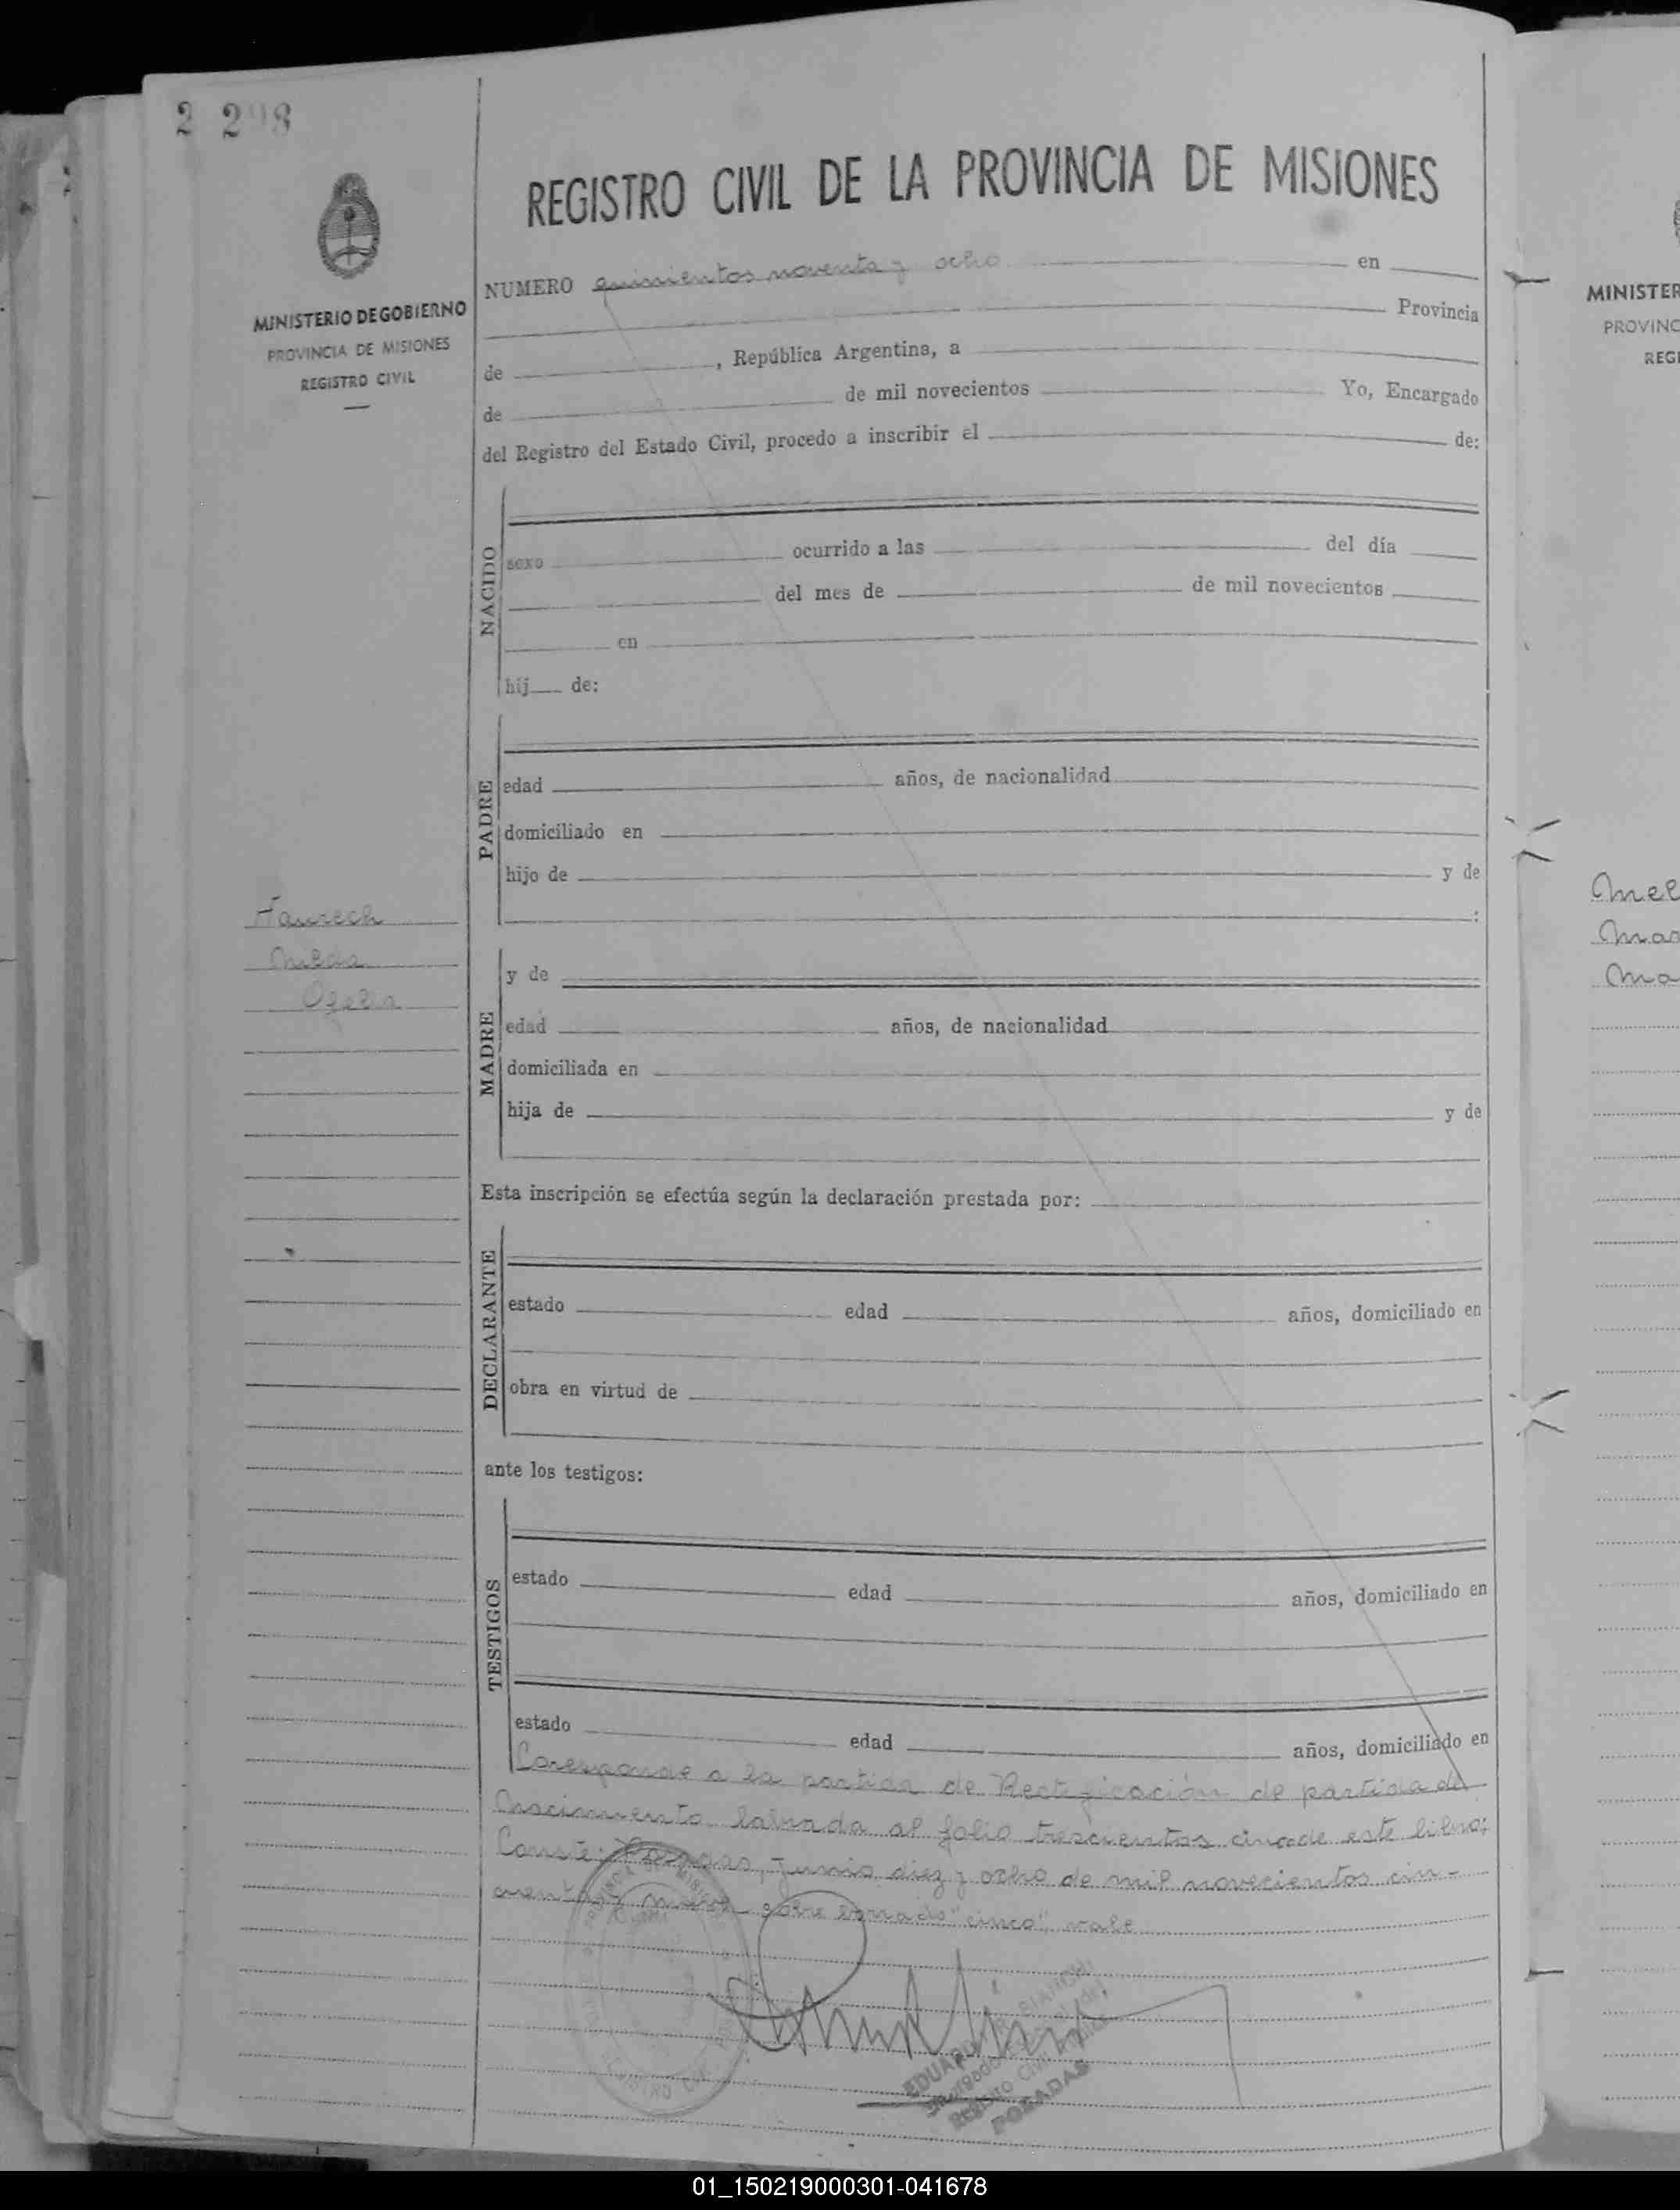 2 298
REGISTRO CIVIL DE LA PROVINCIA DE MISIONES
MINISTERIO DE GOBIERNO
PROVINCIA DE MISIONES
REGISTRO CIVIL
NUMERO quinientos noventa y ocho en
Provincia
de , República Argentina, a
de de mil novecientos Yo, Encargado
del Registro del Estado Civil, procedo a inscribir el de:
NACIDO
sexo ocurrido a las del día
del mes de de mil novecientos
en
hij de:
PADRE
edad años, de nacionalidad
domiciliado en
hijo de y de
:
Nilda
Ofelia
MADRE
y de
edad años, de nacionalidad
domiciliada en
hija de y de
Esta inscripción se efectúa según la declaración prestada por:
DECLARANTE
estado edad años, domiciliado en
obra en virtud de
ante los testigos:
TESTIGOS
estado edad años, domiciliado en
estado edad años, domiciliado en
Coresponde a la partida de Rectificación de partida de
Nacimiento labrada al folio trescientos cinco de este libro;
Conste: Posadas, Junio diez y ocho de mil novecientos cin-
cuenta y nueve sobre borrado "cinco", vale
REGISTRO CIVIL
POSADAS
MINISTER
PROVINC
REGI
Mel
Mas
Ma
01_150219000301-041678